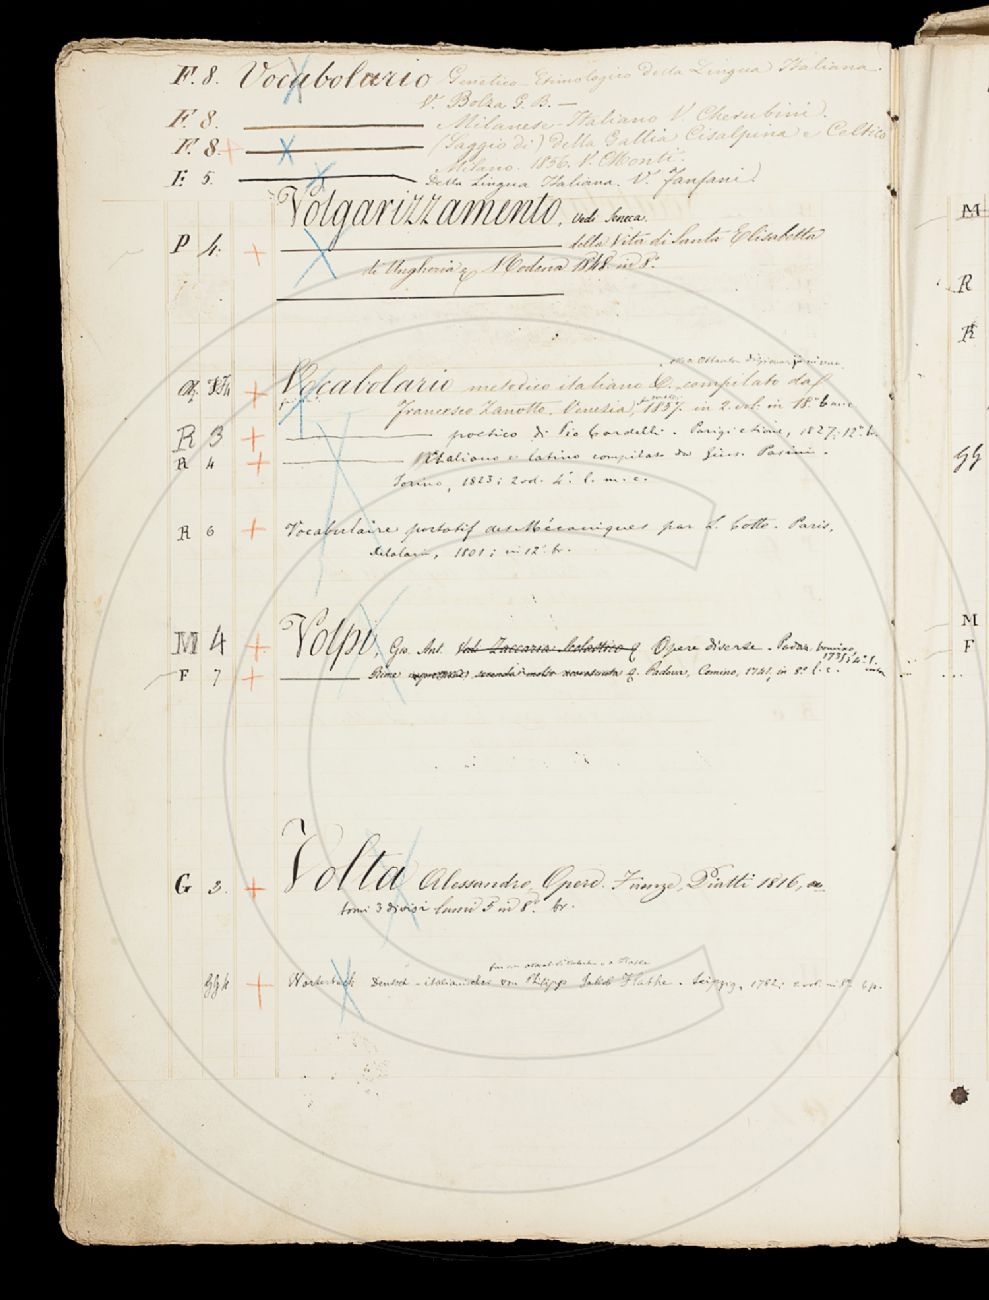 F. 8. Vocabolario Genetico-Etimologico della Lingua Italiana.
V. Bolza G. B. —
F. 8. Milanese-Italiano V. Cherubini.
F. 8. (Saggio di) della Gallia Cisalpina e Celtico
Milano. 1856. V. Monti.
F. 5. Della Lingua Italiana. V. Fanfani.
Volgarizzamento, Vedi Seneca.
P 4. della Vita di Santa Elisabetta
di Ungheria, Modena 1848 in 8º
Vocabolario metodico italiano &c. compilato da
Francesco Zanotto. Venezia, 1857. in 2. vol. in 18.º
R 3 poetico di Pio Cardelli. Parigi 1827; 12º
R 4 Italiano e latino compilato da Gius. Pasini.
Torino, 1823; 2 vol. 4.º l. m. c.
R 6 Vocabulaire portatif des Mécaniques par L. Cotte. Paris,
Delalain, 1801; in 12º br.
M 4 Volpi, Gio. Ant. Opere diverse. Padova Comino,
1735; 4.º
F 7 Rime Padova, Comino, 1741, in 8º l. c.
G 3. Volta Alessandro, Opere. Firenze, Piatti 1816,
tomi 3 divisi in 5 in 8º. br.
gg 4 Worterbuch Deutsch-italianisches von Philipp Jakob Flathe. Leipzig, 1782; 2 vol. in 8º
M
R
R
gg
M
F